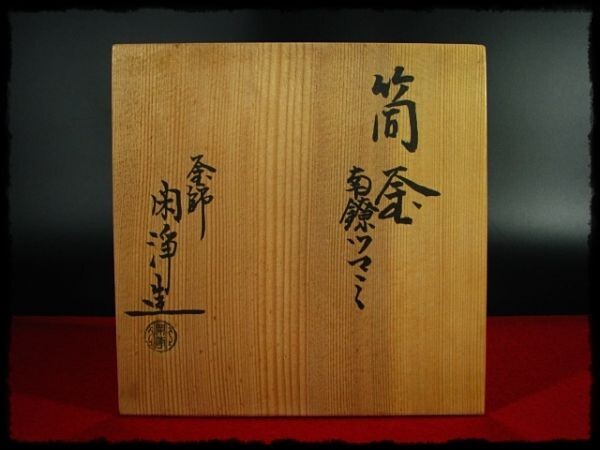 筒釜
南鐐ツマミ
釜師
閑浄造